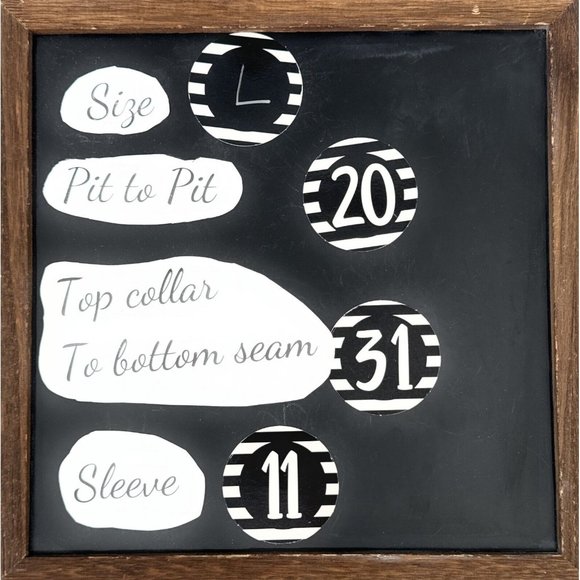 Size L
Pit to Pit 20
Top collar
To bottom seam 31
Sleeve 11